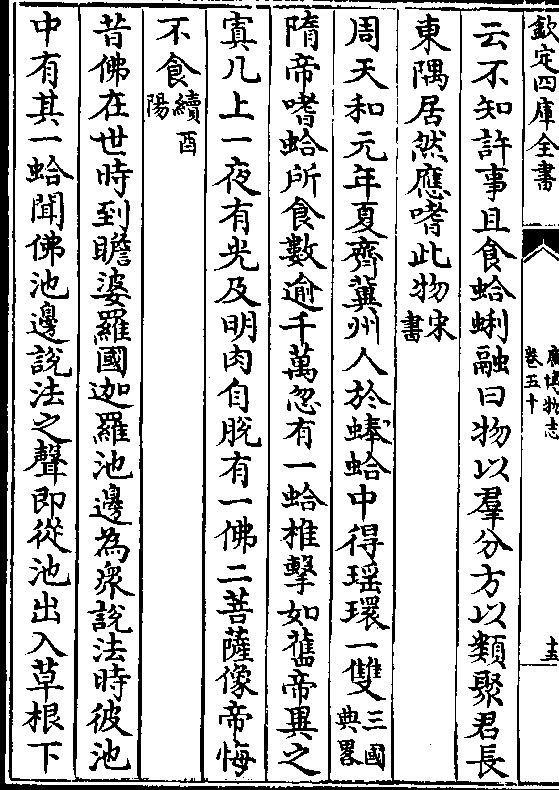 欽定四庫全書
廣博物志
卷五十
十五
云不知許事且食蛤蜊融曰物以羣分方以類聚君長
東隅居然應嗜此物宋書
周天和元年夏齊冀州人於蜯蛤中得瑶環一雙三國典畧
隋帝嗜蛤所食數逾千萬忽有一蛤椎擊如舊帝異之
寘几上一夜有光及明肉自脱有一佛二菩薩像帝悔
不食續酉陽
昔佛在世時到瞻婆羅國迦羅池邊為衆說法時彼池
中有其一蛤聞佛池邊說法之聲即從池出入草根下